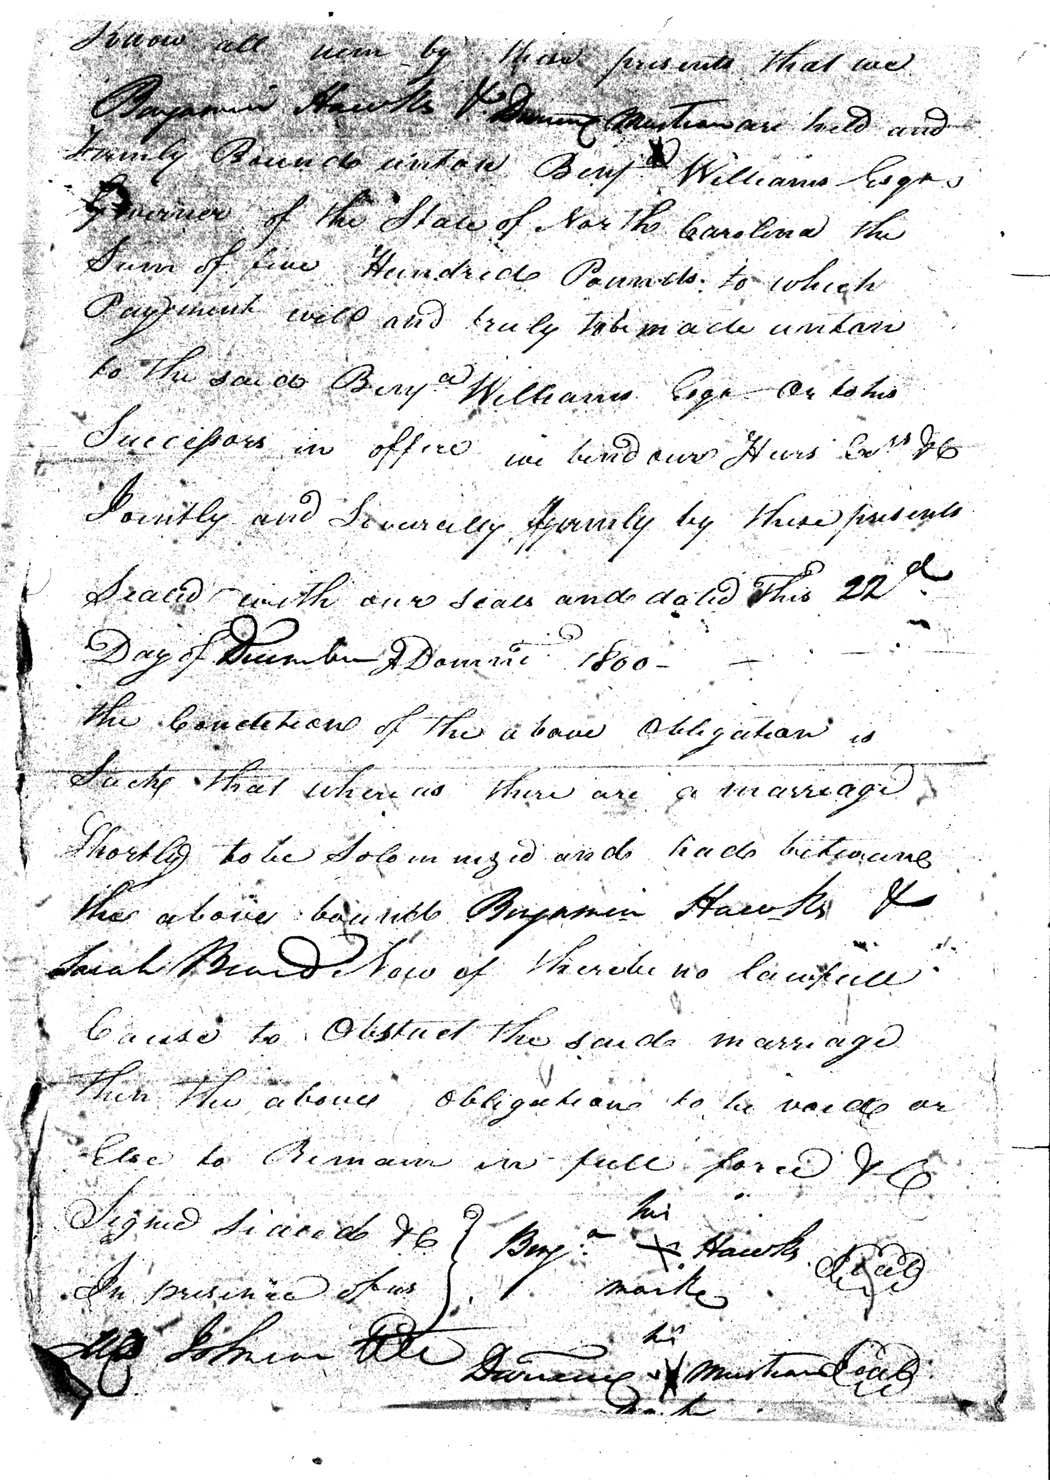 Know all men by these presents that we
Benjamin Hawks & Mustian are held and
Firmly Bounde untoo Benja Williams Esqr
Governer of the State of North Carolina the
Sum of five Hundrede Pounds to which
Payment well and truly tobe made untoo
to the saide Benja Williams Esqr Or to his
Successors in office we bind our Heirs Exrs &C
Jointly and Severally firmly by these presents
Sealed with our seals and dated This 22d
Day of December A Domini 1800
the Condition of the above Obligation is
Such that whereas there are a marriage
Shortly to be Solomnized and hade betweene
the above bounde Benjamin Hawks &
Sarah Beard Now if there be no lawfull
Cause to Obstuct the saide marriage
then the above Obligatione to be voide or
Else to Remain in full force &C
Signed sealede &C } Benja his X Hawks Seal
In presence of us } marke
his
X Mustian Seal
mark